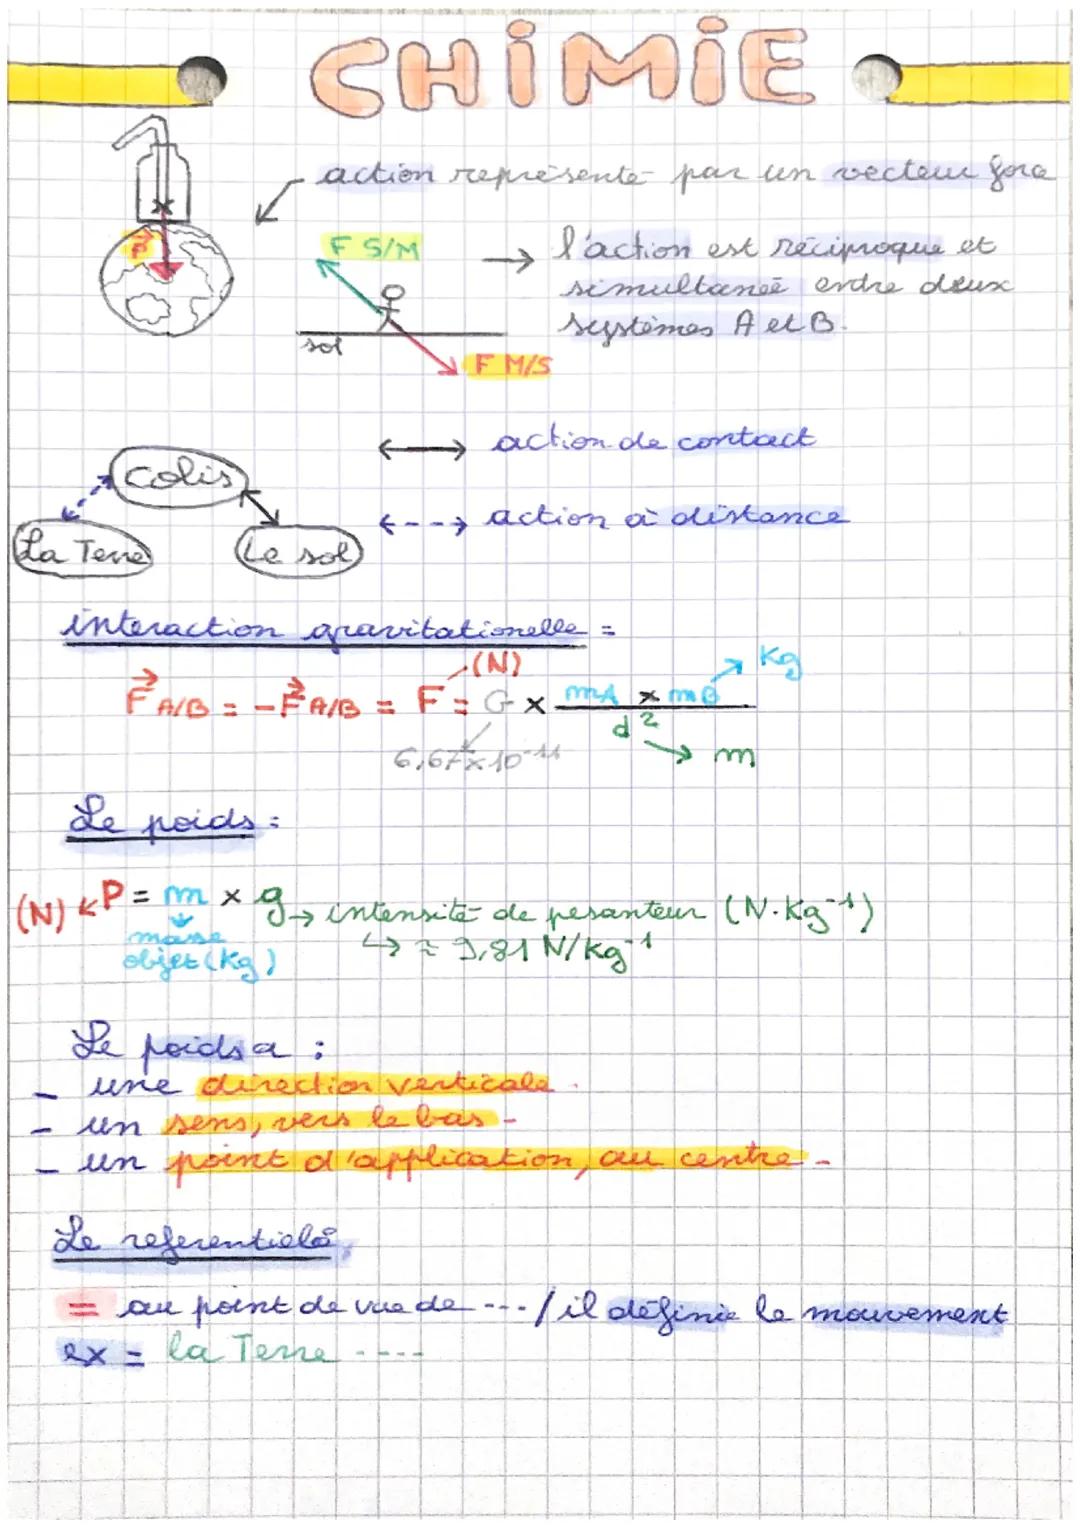 CHiMiE
action représenté par un vecteur force
P
F S/M
→ l'action est réciproque et
simultanée entre deux
systèmes A et B.
sol
F M/S
↔ action de contact
colis
<---> action à distance
La Terre
Le sol
interaction gravitationelle =
(N)
Kg
F A/B = -F A/B = F = G x mA x mB
d²
6,67x10⁻¹¹
m
Le poids :
(N) P = m x g → intensité de pesanteur (N.Kg⁻¹)
masse
↳ ≈ 9,81 N/Kg⁻¹
objet (Kg)
Le poids a :
- une direction verticale.
- un sens, vers le bas -
- un point d'application, au centre -
Le referentiel
= au point de vue de --- / il définie le mouvement
ex = la Terre ----